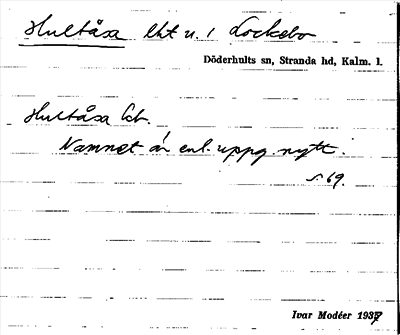 Hultåsa lht u. 1 Lockebo
Döderhults sn, Stranda hd, Kalm. l.
Hultåsa lht.
Namnet är enl. uppg. nytt.
s 69.
Ivar Modéer 1937